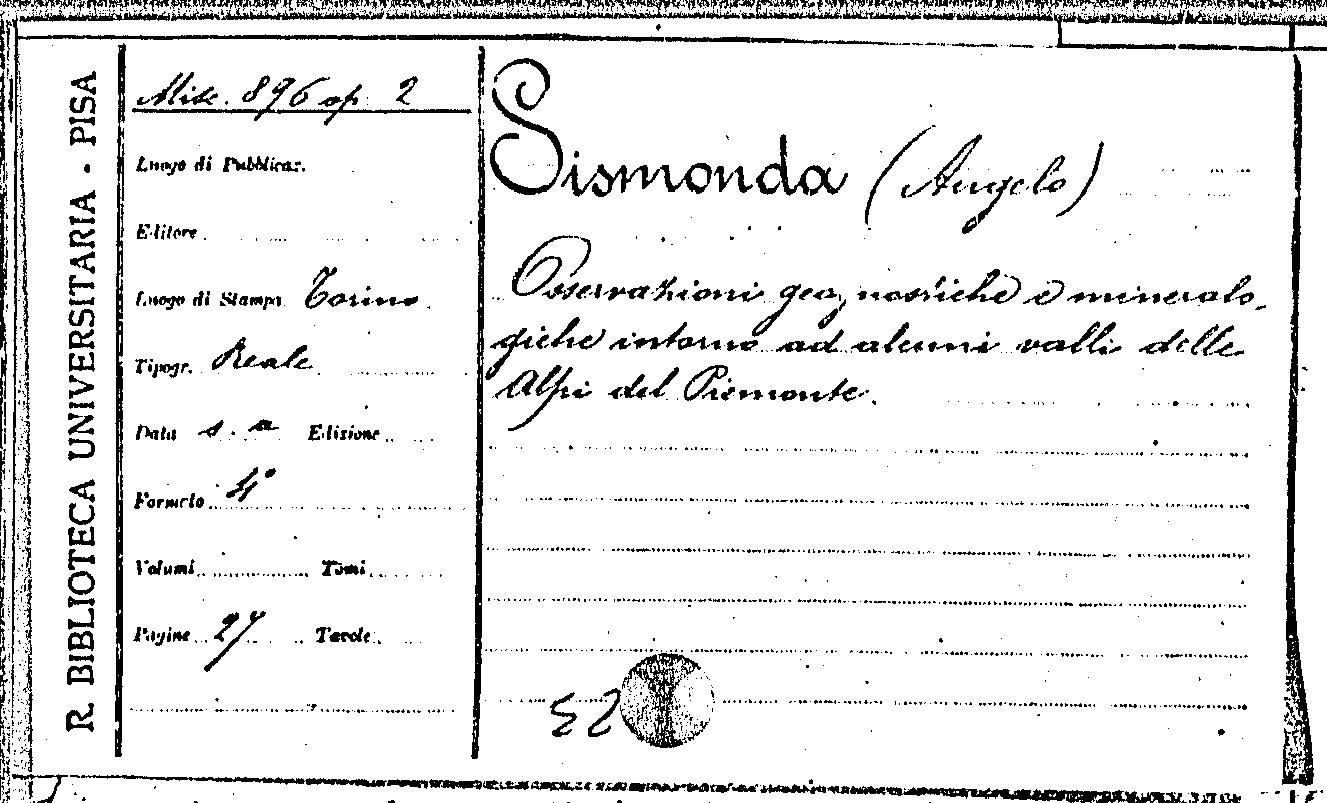 R. BIBLIOTECA UNIVERSITARIA - PISA
Misc. 896 op. 2
Luogo di Pubblicaz.
Editore
Luogo di Stampa Torino
Tipogr. Reale
Data s. a Edizione
Formato 4°
Volumi Tomi
Pagine 27 Tavole
Sismonda (Angelo)
Osservazioni geognostiche e mineralo-
giche intorno ad alcuni valli delle
Alpi del Piemonte.